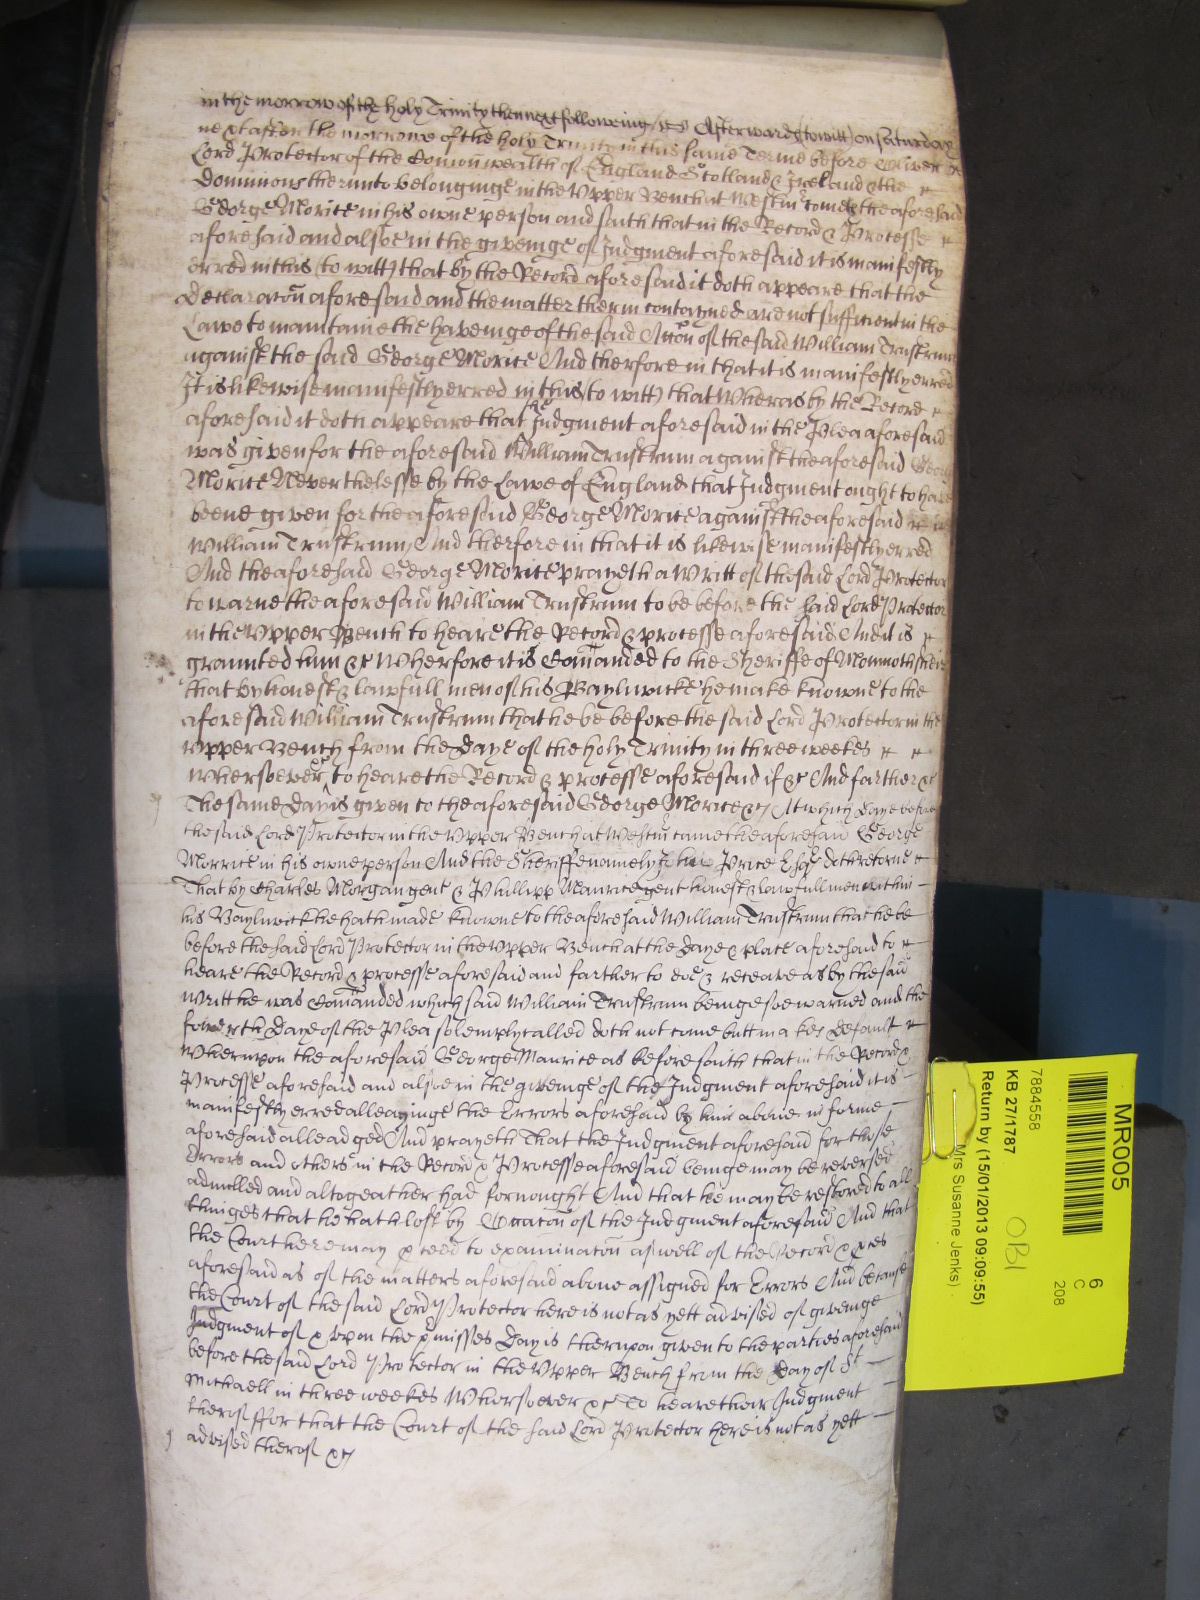 in the morrow of the holy Trinity then next following &c Afterwards (to witt) on Saturday
next after the morrowe of the holy Trinity in this same Terme before Oliver
Lord Protector of the Comonwealth of England Scotland & Ireland & the
Dominions therunto belonginge in the Upper Bench at Westm comes the aforesaid
George Morice in his owne person and saith that in the Record & Processe
aforesaid and alsoe in the giveinge of Judgment aforesaid it is manifestly
erred in this (to witt) that by the Record aforesaid it doth appeare that the
Declaracon aforesaid and the matter therin contayned are not sufficient in the
Lawe to maintaine the haveinge of the said Accon of the said William Trustrum
against the said George Morice And therfore in that it is manifestly erred
It is likewise manifestly erred in this (to witt) that Wheras by the Record
aforesaid it doth appeare that the Judgment aforesaid in the Plea aforesaid
was given for the aforesaid William Trustrum against the aforesaid George
Morice Neverthelesse by the Lawe of England that Judgment ought to have
beene given for the aforesaid George Morice against the aforesaid
William Trustrum And therfore in that it is likewise manifestly erred
And the aforesaid George Morice prayeth a Writt of the said Lord Protector
to warne the aforesaid William Trustrum to be before the said Lord Protector
in the Upper Bench to heare the Record & processe aforesaid And it is
graunted him &c Wherfore it is Comanded to the Sheriffe of Monmothsheir
that by honest & lawfull men of his Bayliwicke he make knowne to the
aforesaid William Trustrum that he be before the said Lord Protector in the
Upper Bench from the Daye of the holy Trinity in three weekes
Whersoever &c to heare the Record & processe aforesaid if &c And farther &c
The same Day is given to the aforesaid George Morice &c At which Daye before
the said Lord Protector in the Upper Bench at Westm came the aforesaid George
Morrice in his owne person And the Sheriffe namely John Price Esq doth retorne
That by Charles Morgan gent & Phillipp Maurice gent honest & lawfull men within
his Baylwick he hath made knowne to the aforesaid William Trustrum that he be
before the said Lord Protector in the Upper Bench at the Daye & place aforesaid to
heare the Record & processe aforesaid and farther to doe & receave as by the said
Writt he was Comanded which said William Trustrum beinge soe warned and the
fowerth Daye of the Plea solemply called doth not come butt makes default
Wherupon the aforesaid George Maurice as before saith that in the Record &
Processe aforesaid and alsoe in the giveinge of the Judgment aforesaid it is
manifestly erred alleaginge the Errors aforesaid by him above in forme
aforesaid alleadged And prayeth That the Judgment aforesaid for those
Errors and others in the Record & Processe aforesaid beinge may be reversed
adnulled and altogeather had for nought And that he may be restored to all
thinges that he hath lost by Occacon of the Judgment aforesaid And that
the Court here may proceed to examinacon aswell of the Record & processe
aforesaid as of the matters aforesaid above assigned for Errors And because
the Court of the said Lord Protector here is not as yett advised of giveinge
Judgment of & upon the premisses Day is therupon given to the parties aforesaid
before the said Lord Protector in the Upper Bench from the Day of St
Michaell in three weekes Whersoever &c To heare their Judgment
therof ffor that the Court of the said Lord Protector here is not as yett
advised therof &c
MR005
6
C
208
7884558
KB 27/1787
Return by (15/01/2013 09:09:55)
Mrs Susanne Jenks)
OBI